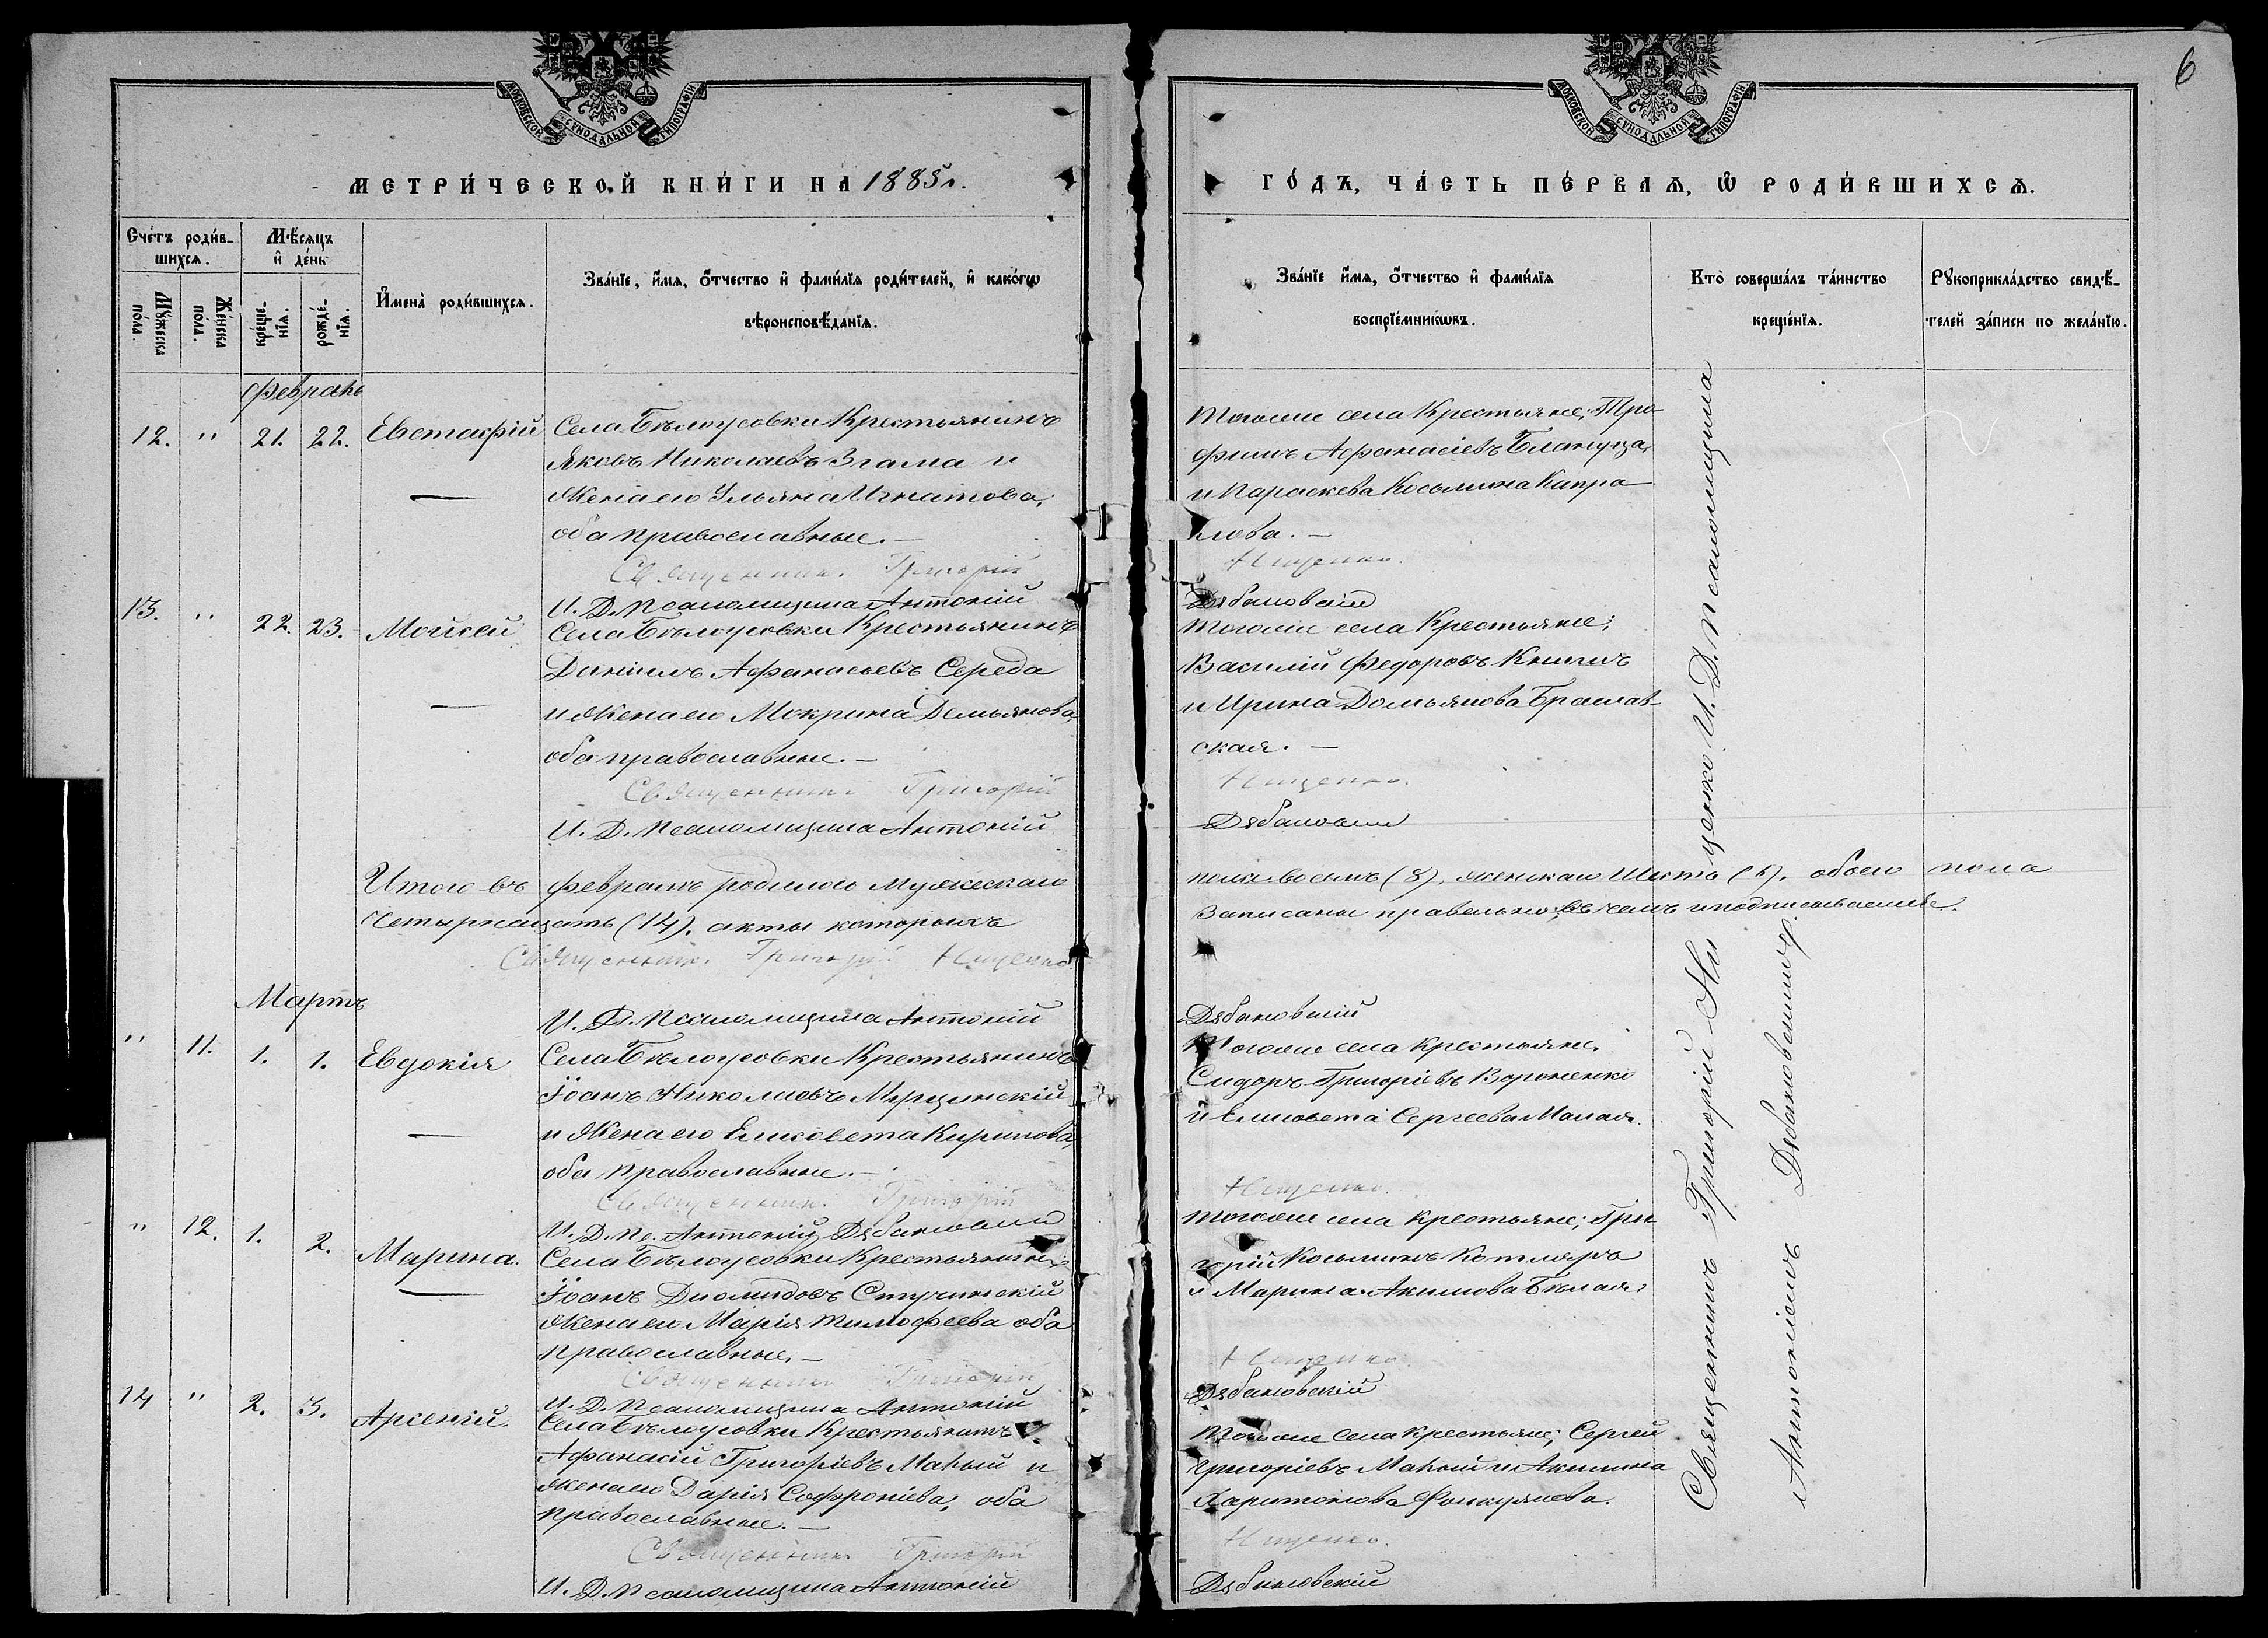 6
МОСКОВСКОЙ СѴНОДАЛЬНОЙ ТИПОГРАФІИ
МОСКОВСКОЙ СѴНОДАЛЬНОЙ ТИПОГРАФІИ
МЕТРИ́ЧЕСКОЙ КНИ́ГИ НА 1885 г.
ГО́ДЪ, ЧА́СТЬ ПЕ́РВАѦ, Ѡ РОДИ́ВШИХСѦ.
Сче́тъ роди́в-
шихсѧ.
Мꙋ́жеска по́ла.
Же́нска по́ла.
Мѣ́сѧцъ
и҆ де́нь
креще́-
нїѧ.
рожде́-
нїѧ.
И҆мена̀ роди́вшихсѧ.
Зва́нїе, и҆́мѧ, ѻ҆́тчество и҆ фами́лїѧ роди́телей, и҆ како́гѡ
вѣроисповѣ́данїѧ.
Зва́нїе и҆́мѧ, ѻ҆́тчество и҆ фами́лїѧ
воспрїе́мникѡвъ.
Кто̀ соверша́лъ та́инство
креще́нїѧ.
Рꙋкоприкла́дство свидѣ́-
телей за́писи по жела́нїю.
Февраль
12. " 21. 22. Евстафій
Села Бѣлоусовки Крестьянинъ
Яковъ Николаевъ Згама и
Жена его Ульяна Игнатова,
оба православные. —
Священникъ Григорій
И. Д. Псаломщика Антоній
Тогоже села Крестьяне; Тро-
фимъ Афанасіевъ Блануца,
и Параскева Косьмина Капра-
лова. —
Нищенко.
Дѣбановскій
13. " 22. 23. Мойсей
Села Бѣлоусовки Крестьянинъ
Даніилъ Афанасьевъ Середа
и Жена его Мокрина Демьянова,
оба православные. —
Священникъ Григорій
И. Д. Псаломщика Антоній
Тогоже села Крестьяне;
Василій Федоровъ Книгиъ
и Ирина Домьянова Браилав-
ская. —
Нищенко.
Дѣбановскій
Итого въ февралѣ родилось Мужескаго пола восемъ (8), женскаго Шесть (6). обоего пола
Четырнацать (14), акты которыхъ Записаны правельно, въ чемъ и подписываемся.
Священникъ Григорій Нищенко
И. Д. Псаломщика Антоній Дѣбановскій
Мартъ
" 11. 1. 1. Евдокія
Села Бѣлоусовки Крестьянинъ
Іоанъ Николаевъ Мерцинскій
и Жена его Елисовета Кирилова,
оба православные. —
Священникъ Григорій
И. Д. Пс. Антоній Дѣбановскій
Тогоже села крестьяне.
Сидоръ Григоріевъ Вороненко
и Елисовета Сергеева Малая.
Нищенко.
" 12. 1. 2. Марина.
Села Бѣлоусовки Крестьянинъ
Іоанъ Диомидовъ Стучинскій
Жена его Марія Тимофеева оба
православные. —
Священникъ Григорій
И. Д. Псаломщика Антоній
Тогоже села крестьяне; Гри-
горій Косьминъ Котляръ
и Марина Акимова Бѣлая.
Нищенко.
Дѣбановскій
14 " 2. 3. Арсеній.
Села Бѣлоусовки Крестьянинъ
Афанасій Григоріевъ Малый и
Жена его Дарія Софроніева, оба
православные. —
Священникъ Григорій
И. Д. Псаломщика Антоній
Тогоже села крестьяне; Сергей
Григоріевъ Малый и Акилина
Харитонова
Нищенко.
Дѣбановскій
Священникъ Григорій Нищенко И. Д. Псаломщика
Антоніемъ Дѣбановскимъ.